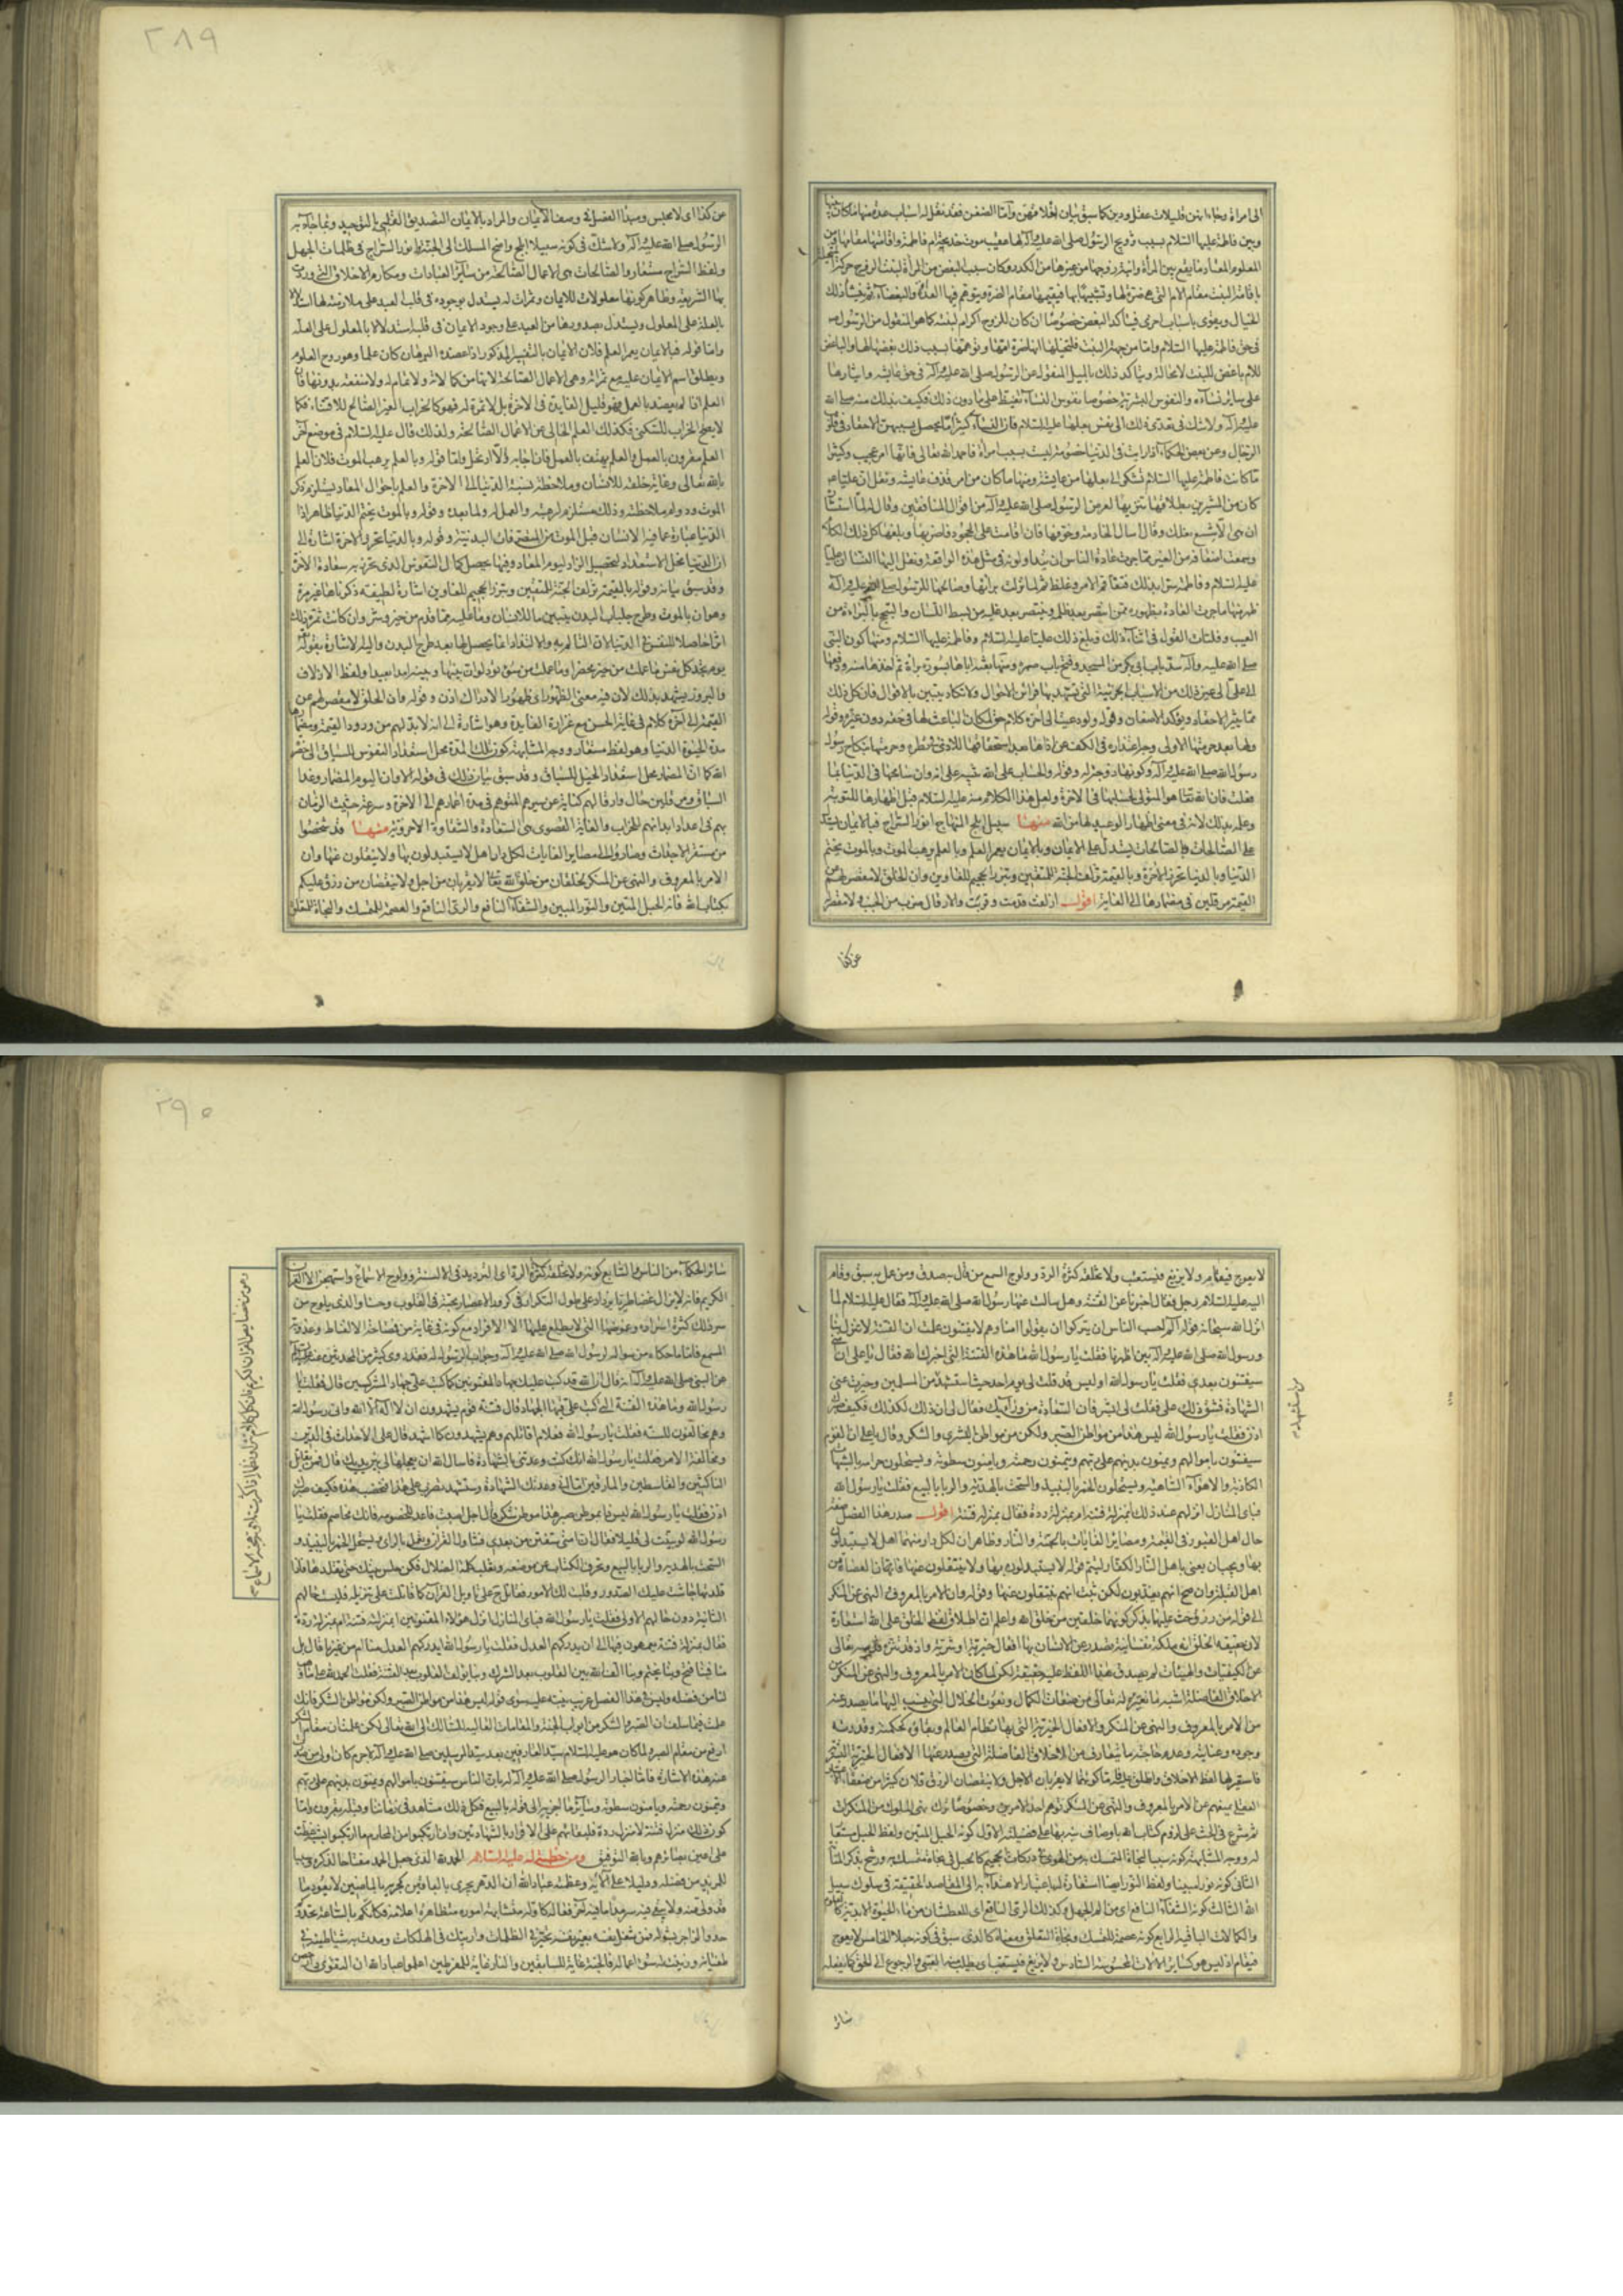 الى امراة وجاء انهن قليلات عقل ودين كما سبق بيان اخلاقهن واما الضغن فقد نقل له اسباب عدة منها ما كان بينها
وبين فاطمة عليها السلام بسبب تزويج الرسول صلى الله عليه وآله لها عقيب موت خديجة ام فاطمة واقامتها مقامها ومن
المعلوم المعتاد ما يقع بين المرأة وابنة زوجها من غيرها من الكدر وكان سبب البغض من المرأة لبنت الزوج حركة
باقامة البنت مقام الام التى هى ضرة لها وتشبيهها بها فيقيمها مقام الضرة ويتوهم فيها العداوة والبغضاء ثم ينشأ ذلك
الخيال ويقوى باسباب اخرى فيتأكد البغض خصوصا ان كان للزوج اكرام لبنته كما هو المنقول من الرسول صلى
فى حق فاطمة عليها السلام واما من جهة البنت فلتخيلها انها ضرة امها وتوهمها بسبب ذلك بغضها لها والباغض
للام باغض للبنت لا محالة ويتأكد ذلك بالميل المنقول عن الرسول صلى الله عليه وآله فى حق عايشة وايثارها
على سائر نسآئه والنفوس البشرية خصوصا نفوس النسآء تغيظ على ما دون ذلك فكيف بذلك منه صلى الله
عليه وآله ولا شك فى تعدى ذلك الى نفس بعلها عليه السلام فان النسآء كثيرا ما يحصل بسببهن الاحقاد فى قلوب
الرجال وعن بعض الحكماء اذا رايت فى الدنيا خصومة ليست بسبب امراة فاحمد الله تعالى فانها امر عجيب وكثيرا
ما كانت فاطمة عليها السلام تشكو الى بعلها من عايشة ومنها ما كان من امر قذف عايشة ونقل ان عليا عم
كان من المشيرين بطلاقها تنزيها لعرض الرسول صلى الله عليه وآله من اقوال المنافقين وقال له لما استشاره
ان هى الا شسع نعلك وقال سل الخادمة وخوفها فان اقامت على الجحود فاضربها وبلغها كل ذلك الكلام
وسمعت اضعافه من الغير مما جرت عادة الناس ان يتداولوه فى مثل هذه الواقعة ونقل اليها النساء ان عليا
عليه السلام وفاطمة سرا بذلك فتفاقم الامر وغلظ ثم لما نزلت برآءتها وصالحها الرسول صلى الله عليه وآله
ظهر منها ما جرت العادة بظهوره ممن انتصر بعد ظلم وينتصر بعد غلبة من بسط اللسان والتبجح بالبراءة من
العيب وفلتات القول فى اثناء ذلك وبلغ ذلك عليا عليه السلام وفاطمة عليها السلام ومنها كون النبى
صلى الله عليه وآله سد باب ابى بكر من المسجد وفتح باب صهره ومنها بعثه اباها بسورة براءة ثم اخذها منه ودفعها
الى على الى غير ذلك من الاسباب الجزئية التى تشهد بها قرائن الاحوال ولا تكاد يتبين بالاقوال فان كل ذلك
مما يثير الاحقاد ويؤكد الاضغان وقوله ولو دعيت الى آخره كلام حق لمكان الباعث لها فى حقه دون غيره وقوله
ولها بعد حرمتها الاولى وجه اعتذاره فى الكف عن اذاها بعد استحقاقها للاذى فى نظره وحرمتها بنكاح رسول
رسول الله صلى الله عليه وآله وكونها زوجة له وقوله والحساب على الله تنبيه على انه وان سامحها فى الدنيا بما
فعلت فان الله تعالى هو المتولى لحسابها فى الآخرة ولعل هذا الكلام منه عليه السلام قبل اظهارها للتوبة
وعلمه بذلك لانه فى معنى اظهار الوعيد لها من الله منهـا سبيل ابلج المنهاج انور السراج فبالايمان يستدل
على الصالحات وبالصالحات يستدل على الايمان وبالايمان يعمر العلم وبالعلم يرهب الموت وبالموت يختم
الدنيا وبالدنيا تحرز الآخرة وبالقيمة تزلف الجنة للمتقين وتبرز الجحيم للغاوين وان الخلق لا مقصر لهم عن
القيمة مرقلين فى مضمارها الى الغاية اقول ازلفت قدمت وقربت والارقال ضرب من الخبب ولا مقصر
عن كذا
عن كذا اى لا محبس ومبدأ الفصل فى وصف الايمان والمراد بالايمان التصديق القلبى بالتوحيد وبما جآء به
الرسول صلى الله عليه وآله ولا شك فى كونه سبيلا ابلج واضح المسلك الى الجنة انور السراج فى ظلمات الجهل
ولفظ السراج مستعار والصالحات هى الاعمال الصالحة من سآئر العبادات ومكارم الاخلاق التى وردت
بها الشريعة وظاهر كونها معلولات للايمان وثمرات له يستدل بوجوده فى قلب العبد على ملازمته لها استدلالا
بالعلة على المعلول ويستدل بصدورها من العبد على وجود الايمان فى قلبه استدلالا بالمعلول على العلة
واما قوله فبالايمان يعمر العلم فلان الايمان بالتفسير المذكور اذا عضده البرهان كان علما وهو روح العلوم
ويطلق اسم الايمان عليه مع ثمراته وهى الاعمال الصالحة لانها من كمالاته ولا تمام له ولا منفعة بدونها فان
العلم اذا لم يعضد بالعمل فهو قليل الفايدة فى الآخرة بل لا ثمرة له فهو كالخراب الغير الصالح للاقتناء فكما
لا يصلح الخراب للسكنى فكذلك العلم الخالى عن الاعمال الصالحة ولذلك قال عليه السلام فى موضع آخر
العلم مقرون بالعمل والعلم يهتف بالعمل فان اجابه والا ارتحل واما قوله وبالعلم يرهب الموت فلان العلم
بالله تعالى وبغاية خلقه للانسان وملاحظة نسبة الدنيا الى الآخرة والعلم باحوال المعاد يستلزم ذكر
الموت ودوام ملاحظته وذلك مستلزم لرهبته والعمل له ولما بعده وقوله وبالموت يختم الدنيا ظاهر اذا
الدنيا عبارة عما فيه الانسان قبل الموت من التصرفات البدنية وقوله وبالدنيا تحرز الآخرة اشارة الى
ان الدنيا محل الاستعداد لتحصيل الزاد ليوم المعاد وفيها يحصل كمال النفوس الذى تحرز به سعادة الآخرة
وقد سبق بيانه وقوله بالقيمة تزلف الجنة للمتقين وتبرز الجحيم للغاوين اشارة لطيفة ذكرناها غير مرة
وهو ان بالموت وطرح جلباب البدن يتبين ما للانسان وما عليه مما قدم من خير وشر وان كانت ثمرة ذلك
يوم تجد كل نفس ما عملت من خير محضرا وما عملت من سوء تود لو ان بينها وبينه امدا بعيدا ولفظ الازلاف
والبروز يشهد بذلك لان فيه معنى الظهور اى ظهور الادراك اذن وقوله وان الخلق لا مقصر لهم عن
القيمة الى آخره كلام فى غاية الحسن مع غزارة الفايدة وهو اشارة الى انه لا بد لهم من ورود القيمة ومضمارها
مدة الحيوة الدنيا وهو لفظ مستعار ووجه المشابهة كون تلك المدة محل استعداد النفوس للسباق الى حضرة
الله كما ان المضمار محل استعداد الخيل للسباق وقد سبق بيان ذلك فى قوله الا وان اليوم المضمار وغدا
السباق ومرقلين حال وارقالهم كناية عن سيرهم المتوهم فى مدة اعمارهم الى الآخرة وسرعة حثيث الزمان
بهم فى اعداد ابدانهم للخراب والغاية القصوى هى السعادة والشقاوة الاخروية منهـا قد شخصوا
من مستقر الاجداث وصاروا الى مصاير الغايات لكل دار اهل لا يستبدلون بها ولا ينقلون عنها وان
الامر بالمعروف والنهى عن المنكر لخلقان من خلق الله تعالى لا يقربان من اجل ولا ينقصان من رزق عليكم
بكتاب الله فانه الحبل المتين والنور المبين والشفآء النافع والرى الناقع والعصمة للمتمسك والنجاة للمتعلق
٢٨٩
لا يعوج فيقام ولا يزيغ فيستعتب ولا تخلقه كثرة الرد وولوج السمع من قال به صدق ومن عمل به سبق وقام
اليه عليه السلام رجل فقال اخبرنا عن الفتنة وهل سالت عنها رسول الله صلى الله عليه وآله فقال عليه السلام لما
انزل الله سبحانه قوله الم احسب الناس ان يتركوا ان يقولوا امنا وهم لا يفتنون علمت ان الفتنة لا تنزل بنا
ورسول الله صلى الله عليه وآله بين اظهرنا فقلت يا رسول الله ما هذه الفتنة التى اخبرك الله فقال يا على ان امتى
سيفتنون بعدى فقلت يا رسول الله اوليس قد قلت لى يوم احد حيث استشهد من المسلمين وحيزت عنى
الشهادة فشق ذلك على فقلت لى ابشر فان الشهادة من ورآئك فقال لى ان ذلك لكذلك فكيف صبرك
اذن فقلت يا رسول الله ليس هذا من مواطن الصبر ولكن من مواطن البشرى والشكر وقال يا على ان القوم
سيفتنون باموالهم ويمنون بدينهم على ربهم ويتمنون رحمته ويأمنون سطوته ويستحلون حرامه بالشبهات
الكاذبة والاهوآء الساهية ويستحلون الخمر بالنبيذ والسحت بالهدية والربا بالبيع فقلت يا رسول الله
فباى المنازل انزلهم عند ذلك ابمنزلة فتنة ام بمنزلة ردة فقال بمنزلة فتنة اقول صدر هذا الفصل صفة
حال اهل القبور فى القيمة ومصاير الغايات بالجنة والنار وظاهر ان لكل دار منهما اهل لا يستبدلون
بها ويجب ان يعنى باهل النار الكفار ليتم قوله لا يستبدلون بها ولا ينتقلون عنها فان العصاة من
اهل القبلة وان صح انهم يعذبون لكن ثبت انهم ينتقلون عنها وقوله وان الامر بالمعروف والنهى عن المنكر
الى قوله من رزق حث عليهما بذكر كونهما خلقين من خلق الله واعلم ان اطلاق لفظ الخلق على الله استعارة
لان حقيقة الخلق انه ملكة نفسانية تصدر عن الانسان بها افعال خيرية او شرية واذ قد تنزه قدسه تعالى
عن الكيفيات والهيئات لم يصدق هذا اللفظ عليه حقيقة لكن لما كان الامر بالمعروف والنهى عن المنكر من
الاخلاق الفاضلة اشبه ما نعتبره له تعالى من صفات الكمال ونعوت الجلال التى ينسب اليها ما يصدر عنه
من الامر بالمعروف والنهى عن المنكر والافعال الخيرية التى بها نظام العالم وبقاؤه كحكمته وقدرته
وجوده وعنايته وعدم حاجته ما يتعارف من الاخلاق الفاضلة التى يصدر عنها الافعال الخيرية البشرية
فاستعير لها لفظ الاخلاق واطلق عليه واما كونهما لا يقربان الاجل ولا ينقصان الرزق فلان كثيرا من ضعفاء
العقل يمنعهم عن الامر بالمعروف والنهى عن المنكر توهم احد الامرين وخصوصا ترك نهى الملوك من المنكرات
ثم شرع فى الحث على لزوم كتاب الله باوصاف نبه بها على فضيلته الاول كونه الحبل المتين ولفظ الحبل مستعار
الثانى كونه نورا مبينا ولفظ النور ايضا استعارة له باعتبار الاهتداء به الى المقاصد الحقيقية فى سلوك سبيل
الله الثالث كونه الشفاء النافع اى من الم الجهل وكذلك الرى الناقع اى للعطشان من ماء الحيوة الابدية كالعلوم
والكمالات الباقية الرابع كونه عصمة للمتمسك ونجاة للمتعلق ومعناه كالذى سبق فى كونه حبلا الخامس لا يعوج
فيقام اذ ليس هو كساير الآلات المحسوسة السادس ولا يزيغ فيستعتب اى يطلب منه العتبى والرجوع الى الحق كما يفعله
سائر
سائر الحكماء من الناس السابع كونه ولا تخلقه كثرة الرد اى الترديد فى الالسنة وولوج الاسماع
الكريم فانه لا يزال غضا طريا يزداد على طول التكرار فى كرور الاعصار محبة فى القلوب وحسنا والذى يلوح من
سر ذلك كثرة اسراره وغموضها التى لا يطلع عليها الا الافراد مع كونه فى غاية من فصاحة الالفاظ وعذوبة
المسمع فاما ما حكاه من سواله لرسول الله صلى الله عليه وآله وجواب الرسول له فقد روى كثير من المحدثين عنه عليه السلام
عن النبى صلى الله عليه وآله انه قال ان الله قد كتب عليك جهاد المفتونين كما كتب على جهاد المشركين قال فقلت يا
رسول الله وما هذه الفتنة التى كتب على فيها الجهاد قال فتنة قوم يشهدون ان لا اله الا الله وانى رسول الله
وهم مخالفون للسنة فقلت يا رسول الله فعلام اقاتلهم وهم يشهدون كما اشهد قال على الاحداث فى الدين
ومخالفة الامر فقلت يا رسول الله انك كنت وعدتنى بالشهادة فاسال الله ان يعجلها لى بين يديك قال فمن يقاتل
الناكثين والقاسطين والمارقين اما انى وعدتك الشهادة وستستشهد تضرب على هذا فتخضب هذه فكيف صبرك
اذن فقلت يا رسول الله ليس ذا بموطن صبر هذا موطن شكر قال اجل اصبت فاعد للخصومة فانك تخاصم فقلت يا
رسول الله لو بينت لى قليلا فقال ان امتى ستفتن من بعدى فتتأول القرآن وتعمل بالراى وتستحل الخمر بالنبيذ و
السحت بالهدية والربا بالبيع وتحرف الكتاب عن مواضعه وتغلب كلمة الضلال فكن حلس بيتك حتى تقلدها فاذا
قلدتها جاشت عليك الصدور وقلبت لك الامور فقاتل ح على تاويل القرآن كما قاتلت على تنزيله فليست حالهم
الثانية دون حالهم الاولى فقلت يا رسول الله فباى المنازل انزل هؤلاء المفتونين ابمنزلة فتنة ام بمنزلة ردة
فقال بمنزلة فتنة يعمهون فيها الى ان يدركهم العدل فقلت يا رسول الله ايدركهم العدل منا ام من غيرنا قال بل
منا فبنا فتح وبنا يختم وبنا الف الله بين القلوب بعد الشرك وبنا يؤلف القلوب بعد الفتنة فقلت الحمد لله على ما وهب
لنا من فضله وليس فى هذا الفصل غريب ينبه عليه سوى قوله ليس هذا من مواطن الصبر ولكن مواطن الشكر فانك
علمت فيما سلف ان الصبر والشكر من ابواب الجنة والمقامات العالية للسالك الى الله تعالى لكن علمت ان مقام الشكر
ارفع من مقام الصبر ولما كان هو عليه السلام سيد العارفين بعد سيد المرسلين صلى الله عليه وآله لا جرم كان اولى من صدرت
عنه هذه الاشارة فاما اخبار الرسول صلى الله عليه وآله له بان الناس سيفتنون باموالهم ويمنون بدينهم على ربهم
ويتمنون رحمته ويأمنون سطوته وسآئر ما اخبر به الى قوله بالبيع فكل ذلك مشاهد فى زماننا وقبله بقرون واما
كون ذلك منزلة فتنة لا منزلة ردة فلبقائهم على الاقرار بالشهادتين وان ارتكبوا من المحارم ما ارتكبوا لشبه غطت
على اعين بصائرهم وبالله التوفيق ومن خطبة له عليه السلام الحمد لله الذى جعل الحمد مفتاحا لذكره وسببا
للمزيد من فضله ودليلا على آلائه وعظمته عباد الله ان الدهر يجرى بالباقين كجريه بالماضين لا يعود ما
قد ولى منه ولا يبقى فيه سرمدا ما فيه آخر فعاله كاوله متشابهة اموره متظاهرة اعلامه فكانكم بالساعة تحدوكم
حدو الزاجر بشوله فمن شغل نفسه بغير نفسه تحير فى الظلمات وارتبك فى الهلكات ومدت به شياطينه فى
طغيانه وزينت له سئ اعماله فالجنة غاية السابقين والنار غاية المفرطين اعلموا عباد الله ان التقوى دار حصن
٢٩٠